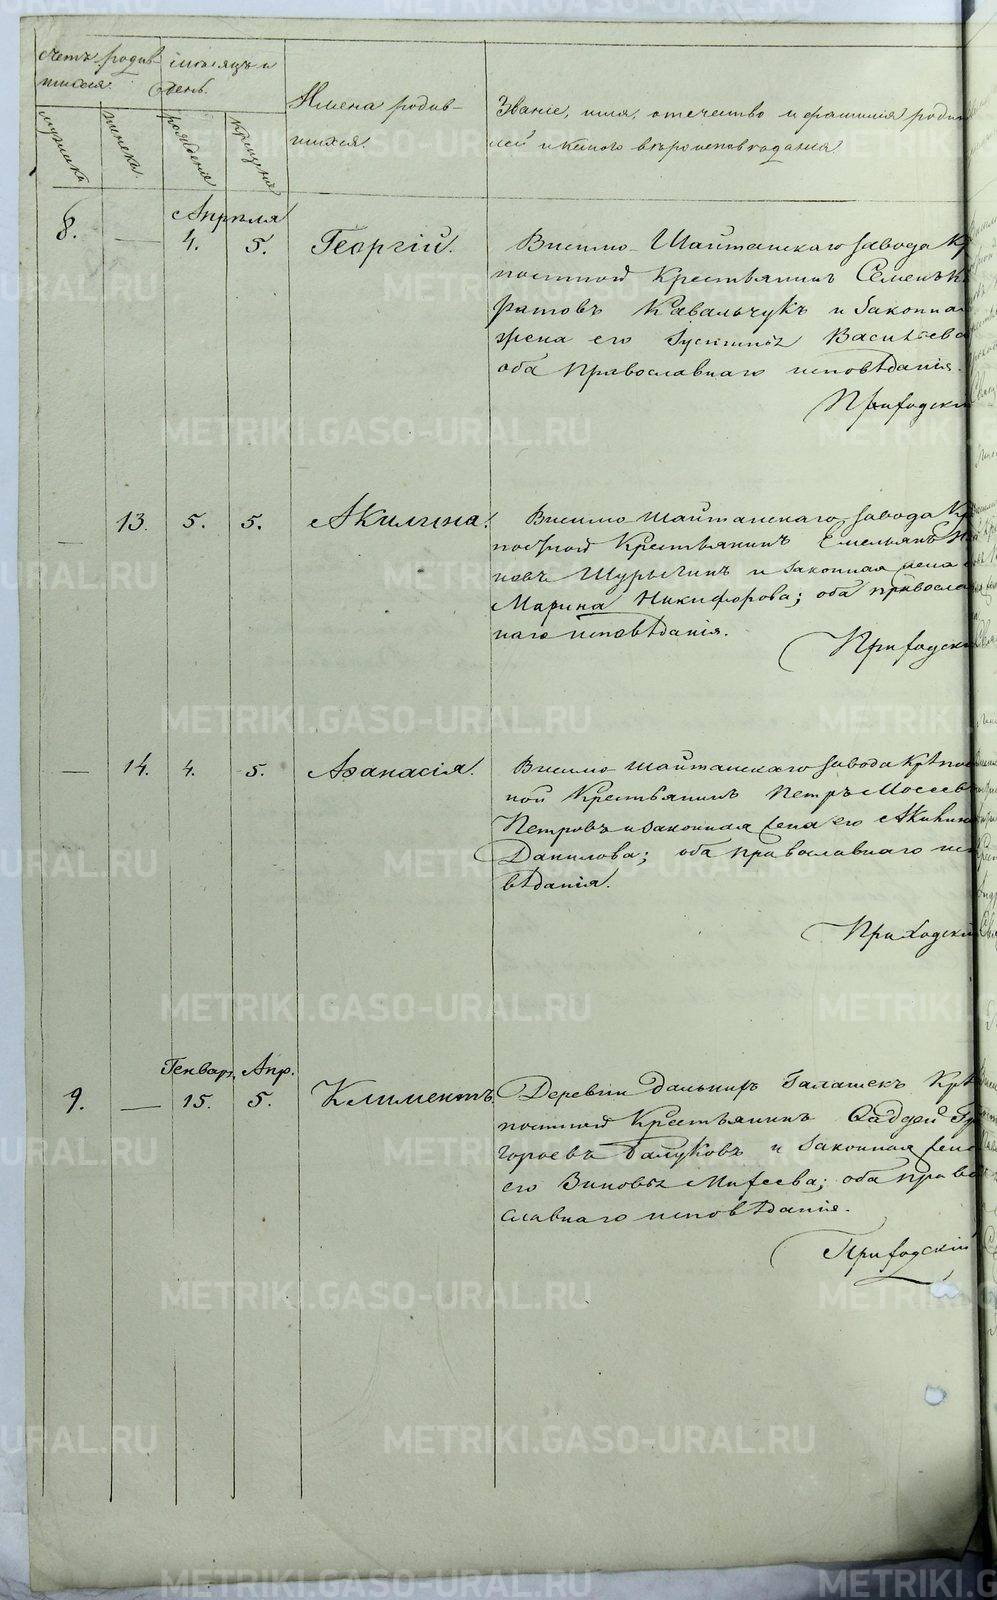 Счетъ родив-
шихся.
Мѣсяцъ и
день.
мужеска
женска
рожденія
крещенія
Имена родив-
шихся.
Званіе, имя, отечество и фамилія роди
лей и какого вѣроисповѣданія
Апрѣля
8. — 4. 5. Георгій.
Висимо-Шайтанскаго завода К
постной Крестьянинъ Семенъ
ратовъ Кавальчукъ и законная
жена его Іустинья Васильева
оба православнаго исповѣданія.
Приходскі
— 13. 5. 5. Акилина.
Висимо-Шайтанскаго завода Кр
постной Крестьянинъ Емельянъ
новъ Шурыгинъ и законная жена
Марина Никифорова; оба правосла
наго исповѣданія.
Приходскі
— 14. 4. 5. Аѳанасія.
Висимо-Шайтанскаго завода Крѣпос
ной Крестьянинъ Петръ Мосеев
Петровъ и законная жена его Акилина
Данилова; оба православнаго исп
вѣданія.
Приходскій
Генвар. Апр.
9. — 15. 5. Климентъ.
Деревни дальнихъ Галашекъ Крѣ
постной Крестьянинъ Ѳаддей Гри
горьевъ и законная жена
его Зиновья Михеева; оба право
славнаго исповѣданія.
Приходскій
METRIKI.GASO-URAL.RU